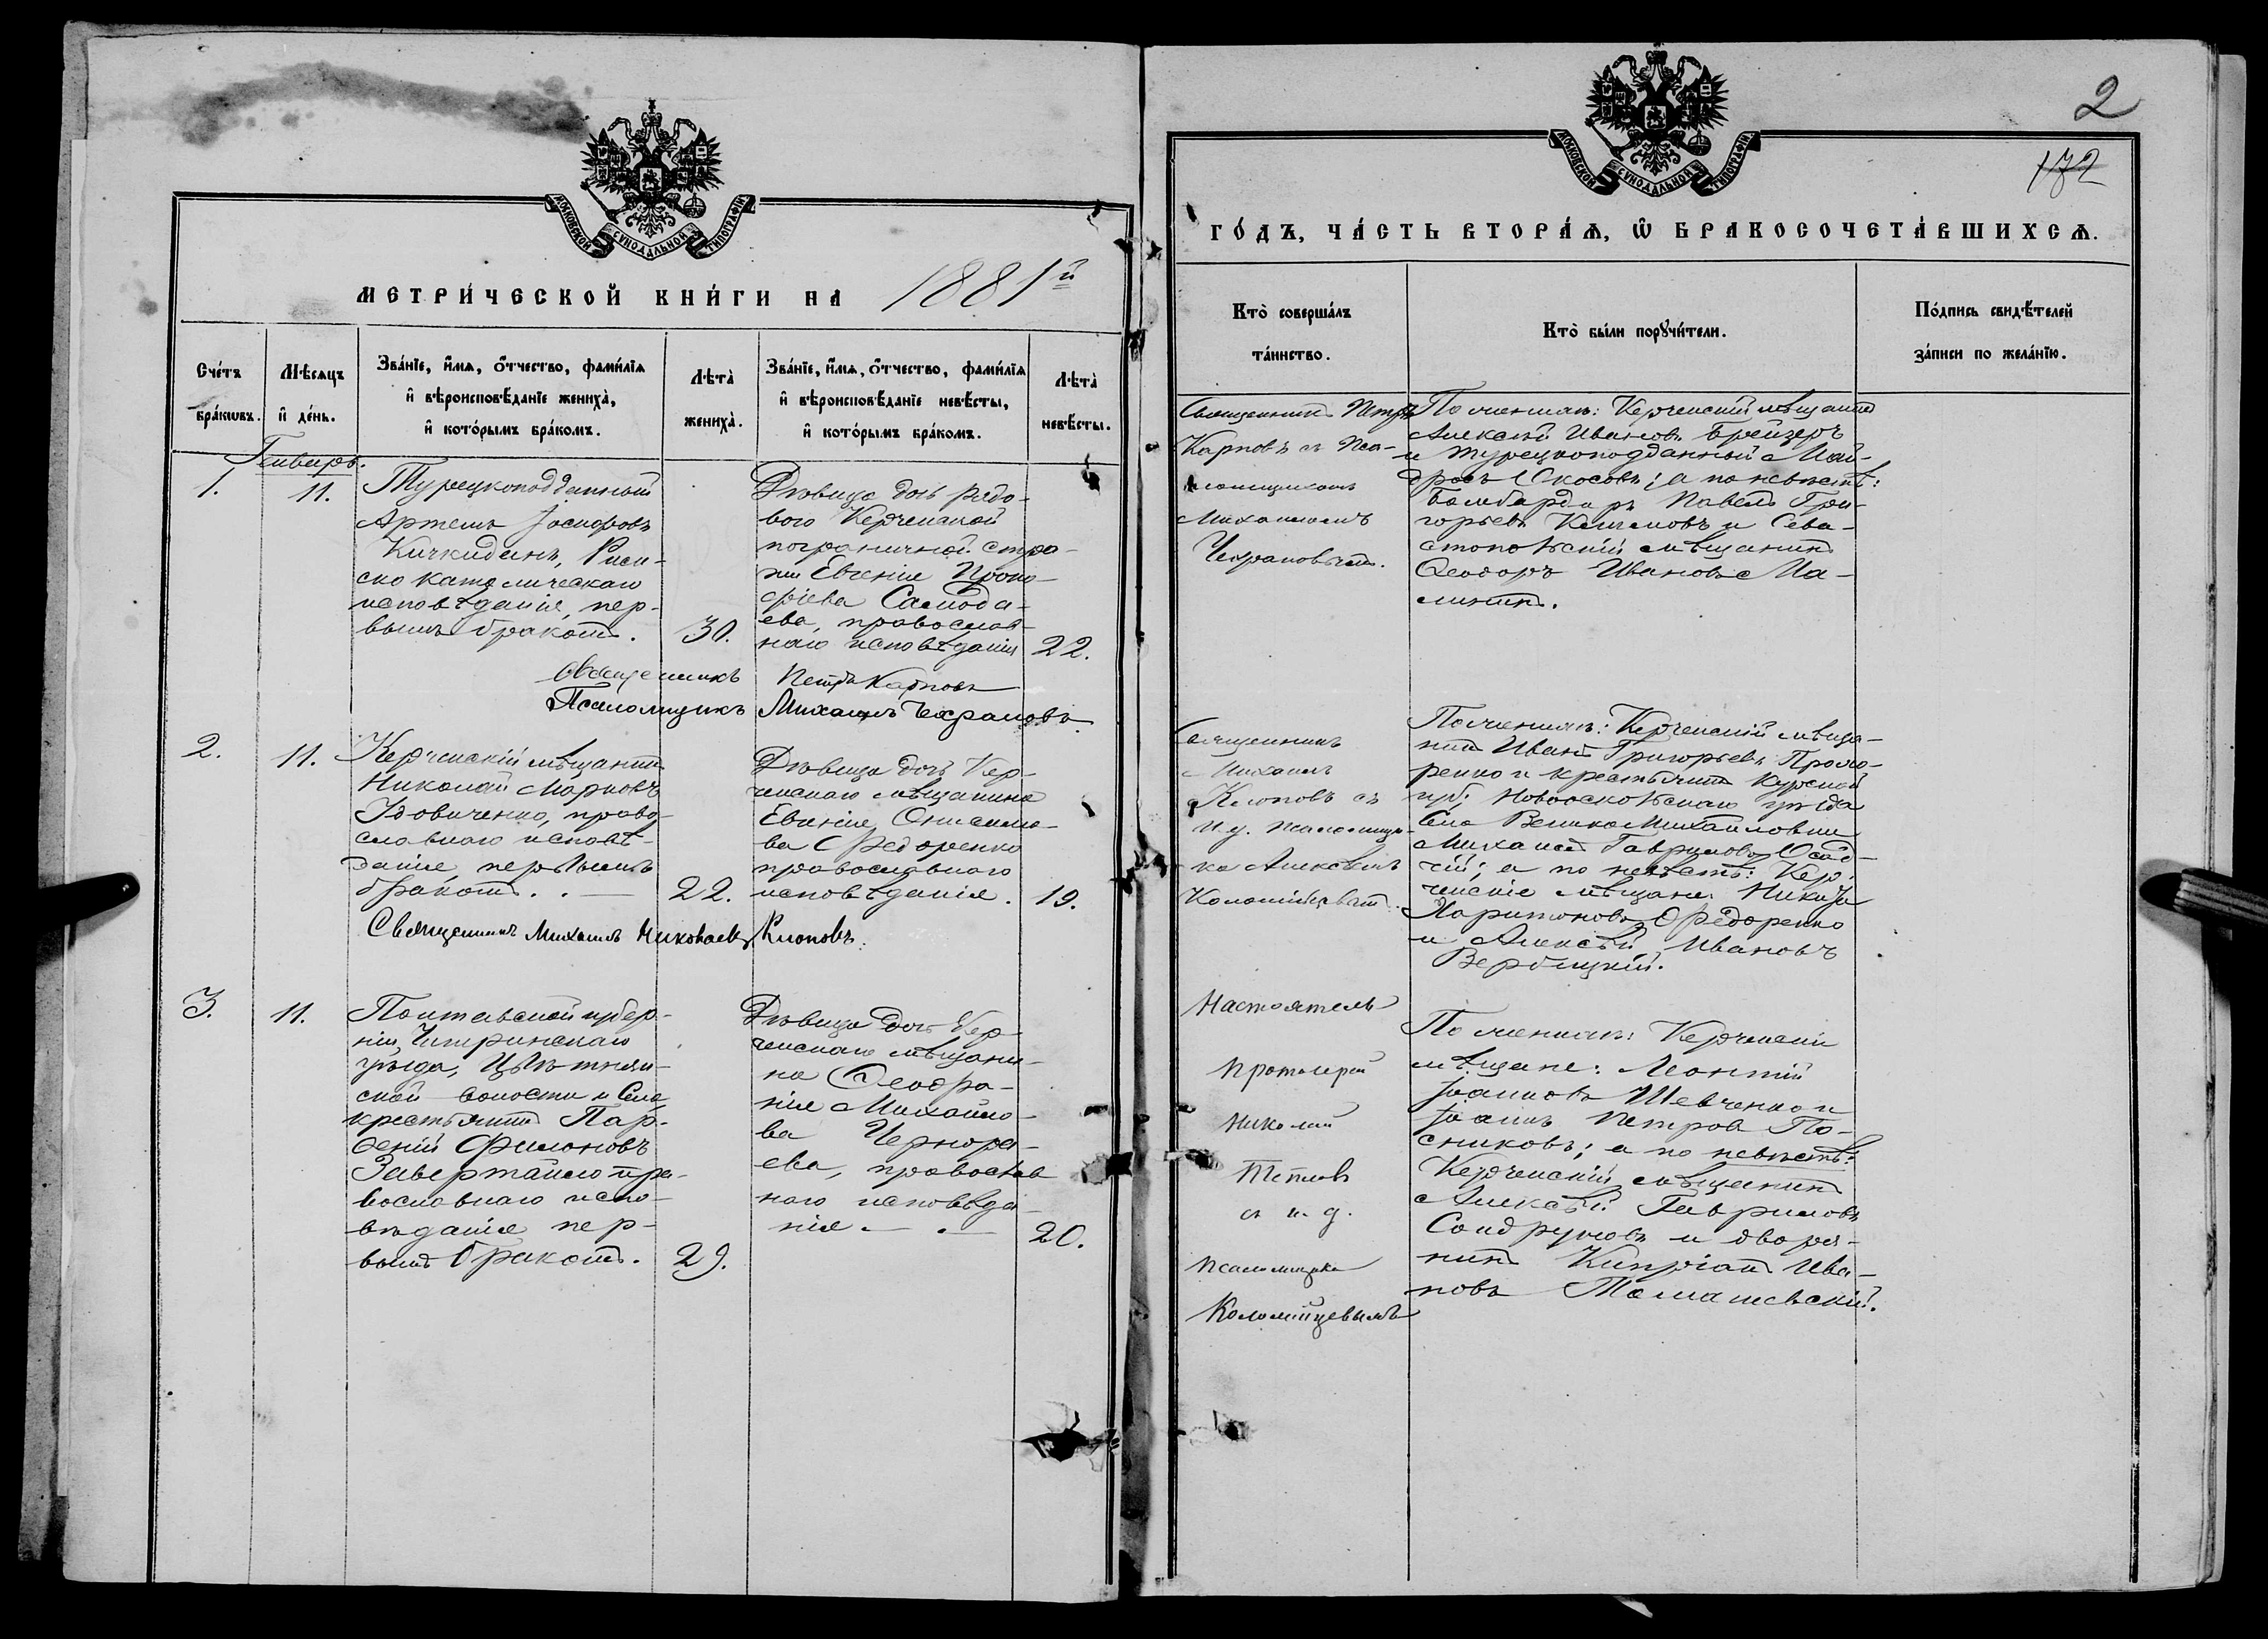 МОСКОВСКОЙ СУНОДАЛЬНОЙ ТИПОГРАФІИ
МЕТРИ́ЧЕСКОЙ КНИ́ГИ НА 1881й
Сче́тъ бра́кωвъ.
Мѣ́сяцъ и҆ де́нь.
Зва́нїе, и҆́мѧ, ѻ҆́тчество, фами́лїѧ
и҆ вѣроисповѣ́данїе жениха̀,
и҆ кото́рымъ бра́комъ.
Лѣта̀
жениха̀.
Зва́нїе, и҆́мѧ, ѻ҆́тчество, фами́лїѧ
и҆ вѣроисповѣ́данїе невѣ́сты,
и҆ кото́рымъ бра́комъ.
Лѣта̀
невѣ́сты.
Генварь.
1.
11.
Турецкоподданный
Артемъ
Кичкидянъ, Рим-
ско католическаго
исповѣданія, пер-
вымъ бракомъ.
30.
Дѣвица дочь рядо-
вого Керченской
пограничной стра-
жи Евгенія Проко-
фіева Самода-
ева, православ-
наго исповѣданія
22.
Священникъ Петръ Карповъ
Псаломщикъ Михаилъ Чехрановъ.
2.
11.
Керченскій мѣщанинъ
Николай Марковъ
Удовиченко, право-
славнаго исповѣ-
данія, первымъ
бракомъ.
22.
Дѣвица дочь Кер-
ченскаго мѣщанина
Евгенія Онисимо-
ва Федоренко
православнаго
исповѣданія.
19.
Священникъ Михаилъ Николаевъ Клоповъ.
3.
11.
Полтавской губер-
ніи, Чигиринскаго
уѣзда,
ской волости и села
крестьянинъ Пар-
ѳеній Филоновъ
Завертайло пра-
вославнаго испо-
вѣданія пер-
вымъ бракомъ.
29.
Дѣвица дочь Кер-
ченскаго мѣщани-
на Ѳеофа-
нія Михайло-
ва Чернора-
ева, православ
наго исповѣда-
нія
20.
2
172
МОСКОВСКОЙ СУНОДАЛЬНОЙ ТИПОГРАФІИ
ГО́ДЪ, ЧА́СТЬ ВТОРА́Ѧ, Ѽ БРАКОСОЧЕТА́ВШИХСѦ.
Кто̀ соверша́лъ
та́инство.
Кто̀ бы́ли порꙋчи́тели.
По́дпись свидѣ́телей
за́писи по жела́нїю.
Священникъ Петръ
Карповъ съ Пса-
ломщикомъ
Михаиломъ
Чехрановымъ.
По женихѣ: Керченскій мѣщанинъ
Алексѣй Ивановъ Брейзеръ
и турецкоподданный Май-
дросъ Окосовъ; а по невѣстѣ:
Бомбардиръ Павелъ Гри-
горьевъ и Сева-
стопольскій мѣщанинъ
Ѳеодоръ Ивановъ Ма-
линин.
Священникъ
Михаилъ
Клоповъ съ
и. д. псаломщи-
ка Алексѣемъ
Коломійцевымъ.
По женихѣ: Керченскій мѣща-
нинъ Иванъ Григорьевъ Прохо-
ренко и крестьянинъ Курской
губ; Новооскольскаго уѣзда
села ВеликоМихайловки
Михаилъ Гавриловъ Осад-
чій; а по невѣстѣ: Кер-
ченскіе мѣщане Никита
Харитоновъ Федоренко
и Алексѣй Ивановъ
Вербицкій.
Настоятель
Протоіерей
Николай
Тепловъ
съ и. д.
псаломщика
Коломійцевымъ
По женихѣ: Керченскіе
мѣщане: Леонтій
Іоанновъ Шевченко и
Іоаннъ Петровъ По-
сниковъ; а по невѣстѣ:
Керченскій мѣщанинъ
Алексѣй Гавриловъ
и дворя-
нинъ Кипріанъ Ива-
новъ Томашевскій.